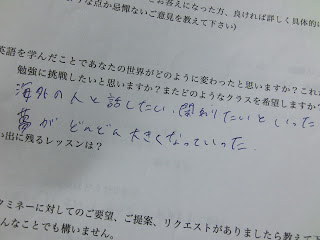 お答えになった方、良ければ詳しく具体的に
ような点か忌憚ないご意見を教えて下さい)
英語を学んだことであなたの世界がどのように変わったと思いますか？これ
勉強に挑戦したいと思いますか？またどのようなクラスを希望しますか？
海外の人と話したい、関わりたいといった
夢がどんどん大きくなっていった。
い出に残るレッスンは？
ミネーに対してのご要望、ご提案、リクエストがありましたら教えて下
んなことでも構いません。